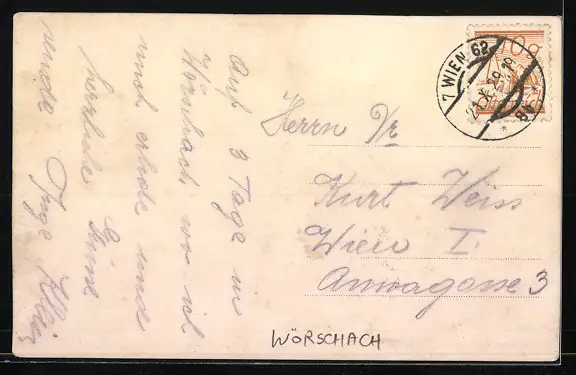 Auf 3 Tage in
Wörschach, wo ich
mich erhole und
herrliche Grüsse
sende Inge
Herrn Dr
Kurt Weiss
Wien I.
Annagasse 3
7 WIEN 62
10 g
WÖRSCHACH